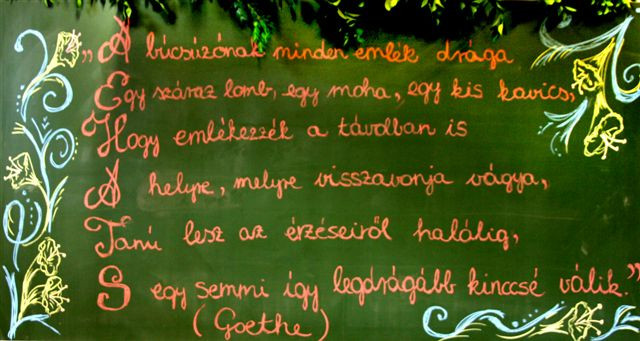 „A búcsúzónak minden emlék drága
Egy száraz lomb, egy moha, egy kis kavics,
Hogy emlékezzék a távolban is
A helyre, melyre visszavonja vágya,
Tanú lesz az érzéseiről halálig,
S egy semmi így legdrágább kinccsé válik.”
(Goethe)